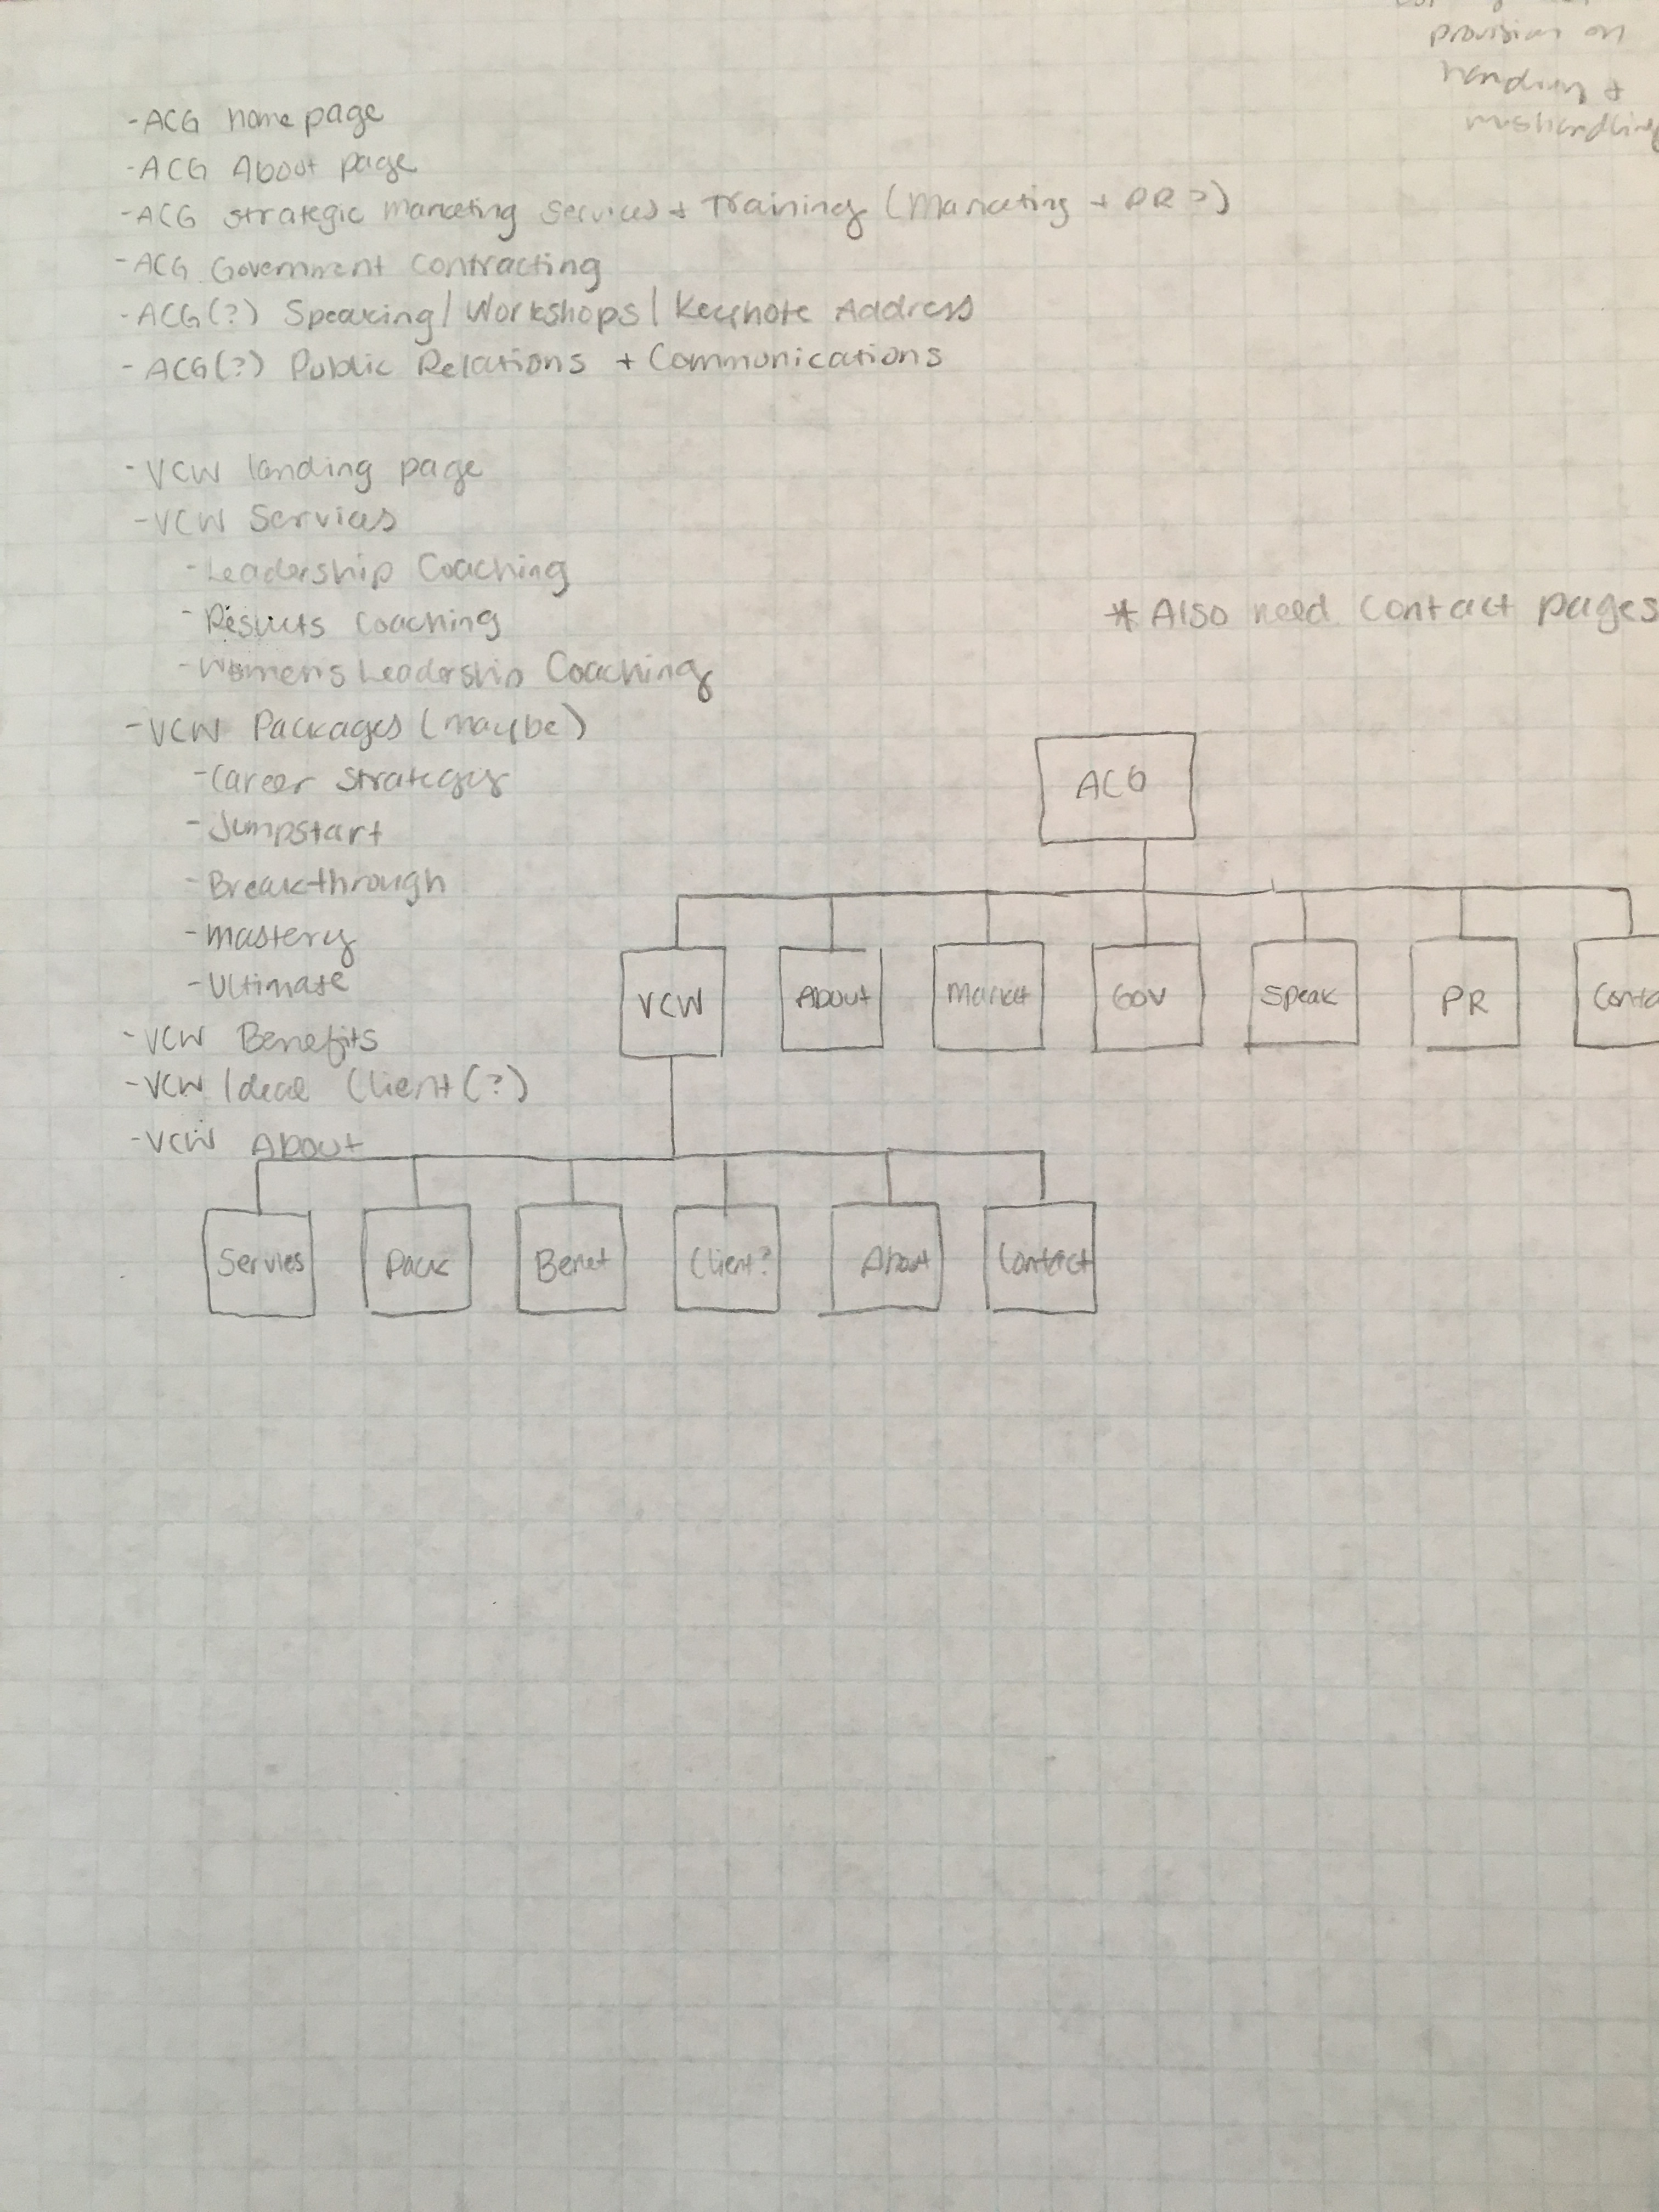 provision on
handling +
mishandling
-ACG home page
-ACG About page
-ACG Strategic Marketing Services + Training (Marketing + PR?)
-ACG Government Contracting
-ACG(?) Speaking/Workshops/Keynote Address
-ACG(?) Public Relations + Communications
-VCW landing page
-VCW Services
-Leadership Coaching
-Results Coaching
-Womens Leadership Coaching
* Also need contact pages
-VCW Packages (maybe)
-Career Strategy
-Jumpstart
-Breakthrough
-Mastery
-Ultimate
-VCW Benefits
-VCW Ideal Client(?)
-VCW About
ACG
VCW
About
Market
Gov
Speak
PR
Conta
Servies
Pack
Benet
Client?
About
Contact